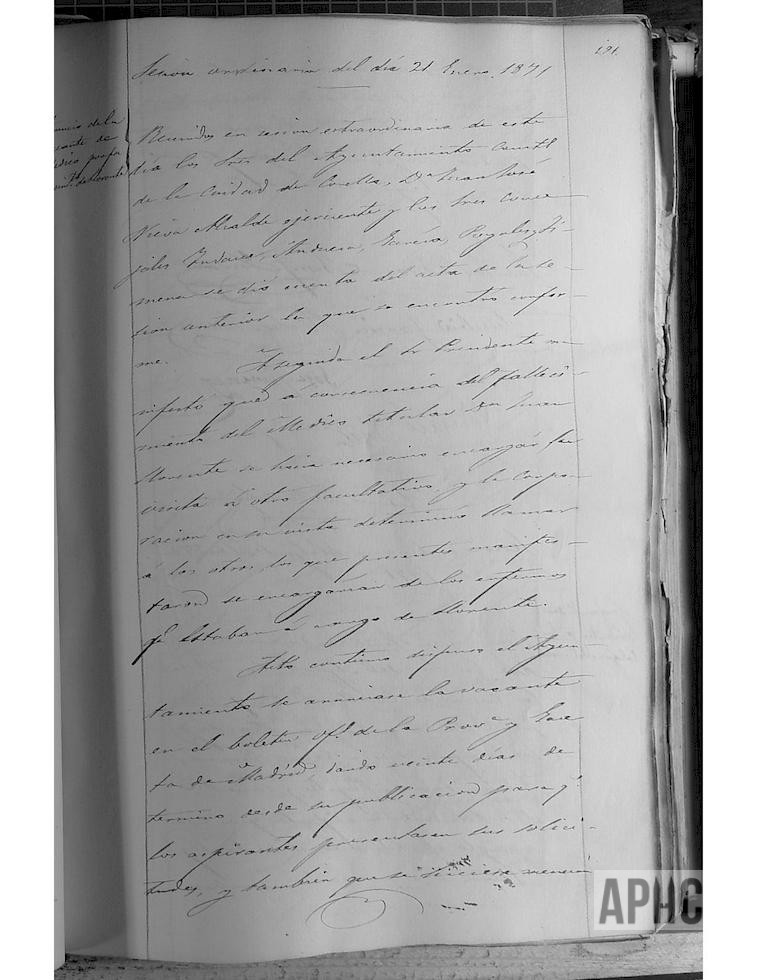 191.
Sesion ordinaria del día 21 Enero. 1871
Anuncio de la
vacante de
Médico por fa
llecimto. de Llorente
Reunidos en sesion extraordinaria de este
día los Sres del Ayuntamiento Constl
de la Ciudad de Corella, Dn Juan José
Nieva Alcalde ejerciente y los Sres Conce
jales Andueza, García, Rozales,
mena se dió cuenta del acta de la se-
sion anterior la que se encontro confor-
me. A seguida el Sr Presidente ma-
nifesto que á consecuencia del falleci-
miento del Médico titular Dn Juan
Llorente se hacia necesario encargar su
visita á otro facultativo, y la Corpo-
racion en su vista determinó llamar
á los otros, los que presentes manifes-
taron se encargarian de los enfermos
qe estaban á cargo de Llorente.
Acto continuo dispuso el Ayun-
tamiento se anunciase la vacante
en el boletin ofl. de la Prova y Gace
ta de Madrid, dando veinte días de
termino desde su publicacion para qe
los aspirantes presentasen sus solici-
tudes, y tambien que se hiciese mencion
APHC